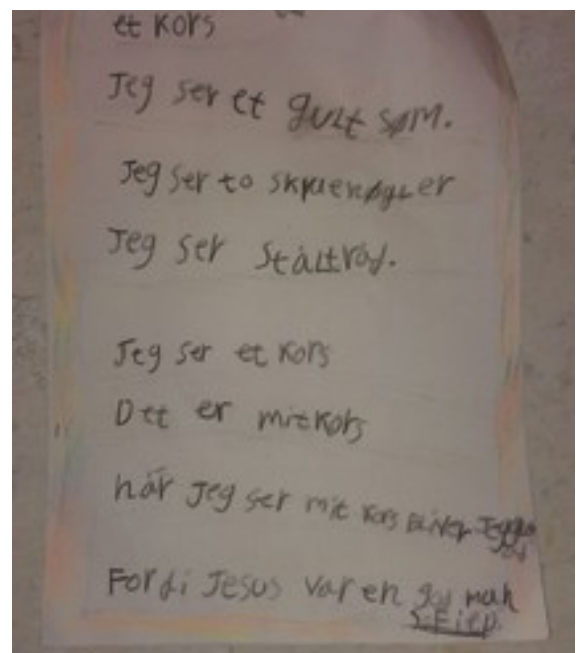 et Kors
Jeg ser et gult søm.
Jeg ser to skruenøgler
Jeg ser ståltråd.
Jeg ser et Kors
Det er mit Kors
når jeg ser mit Kors bliver jeg
Fordi Jesus var en god man